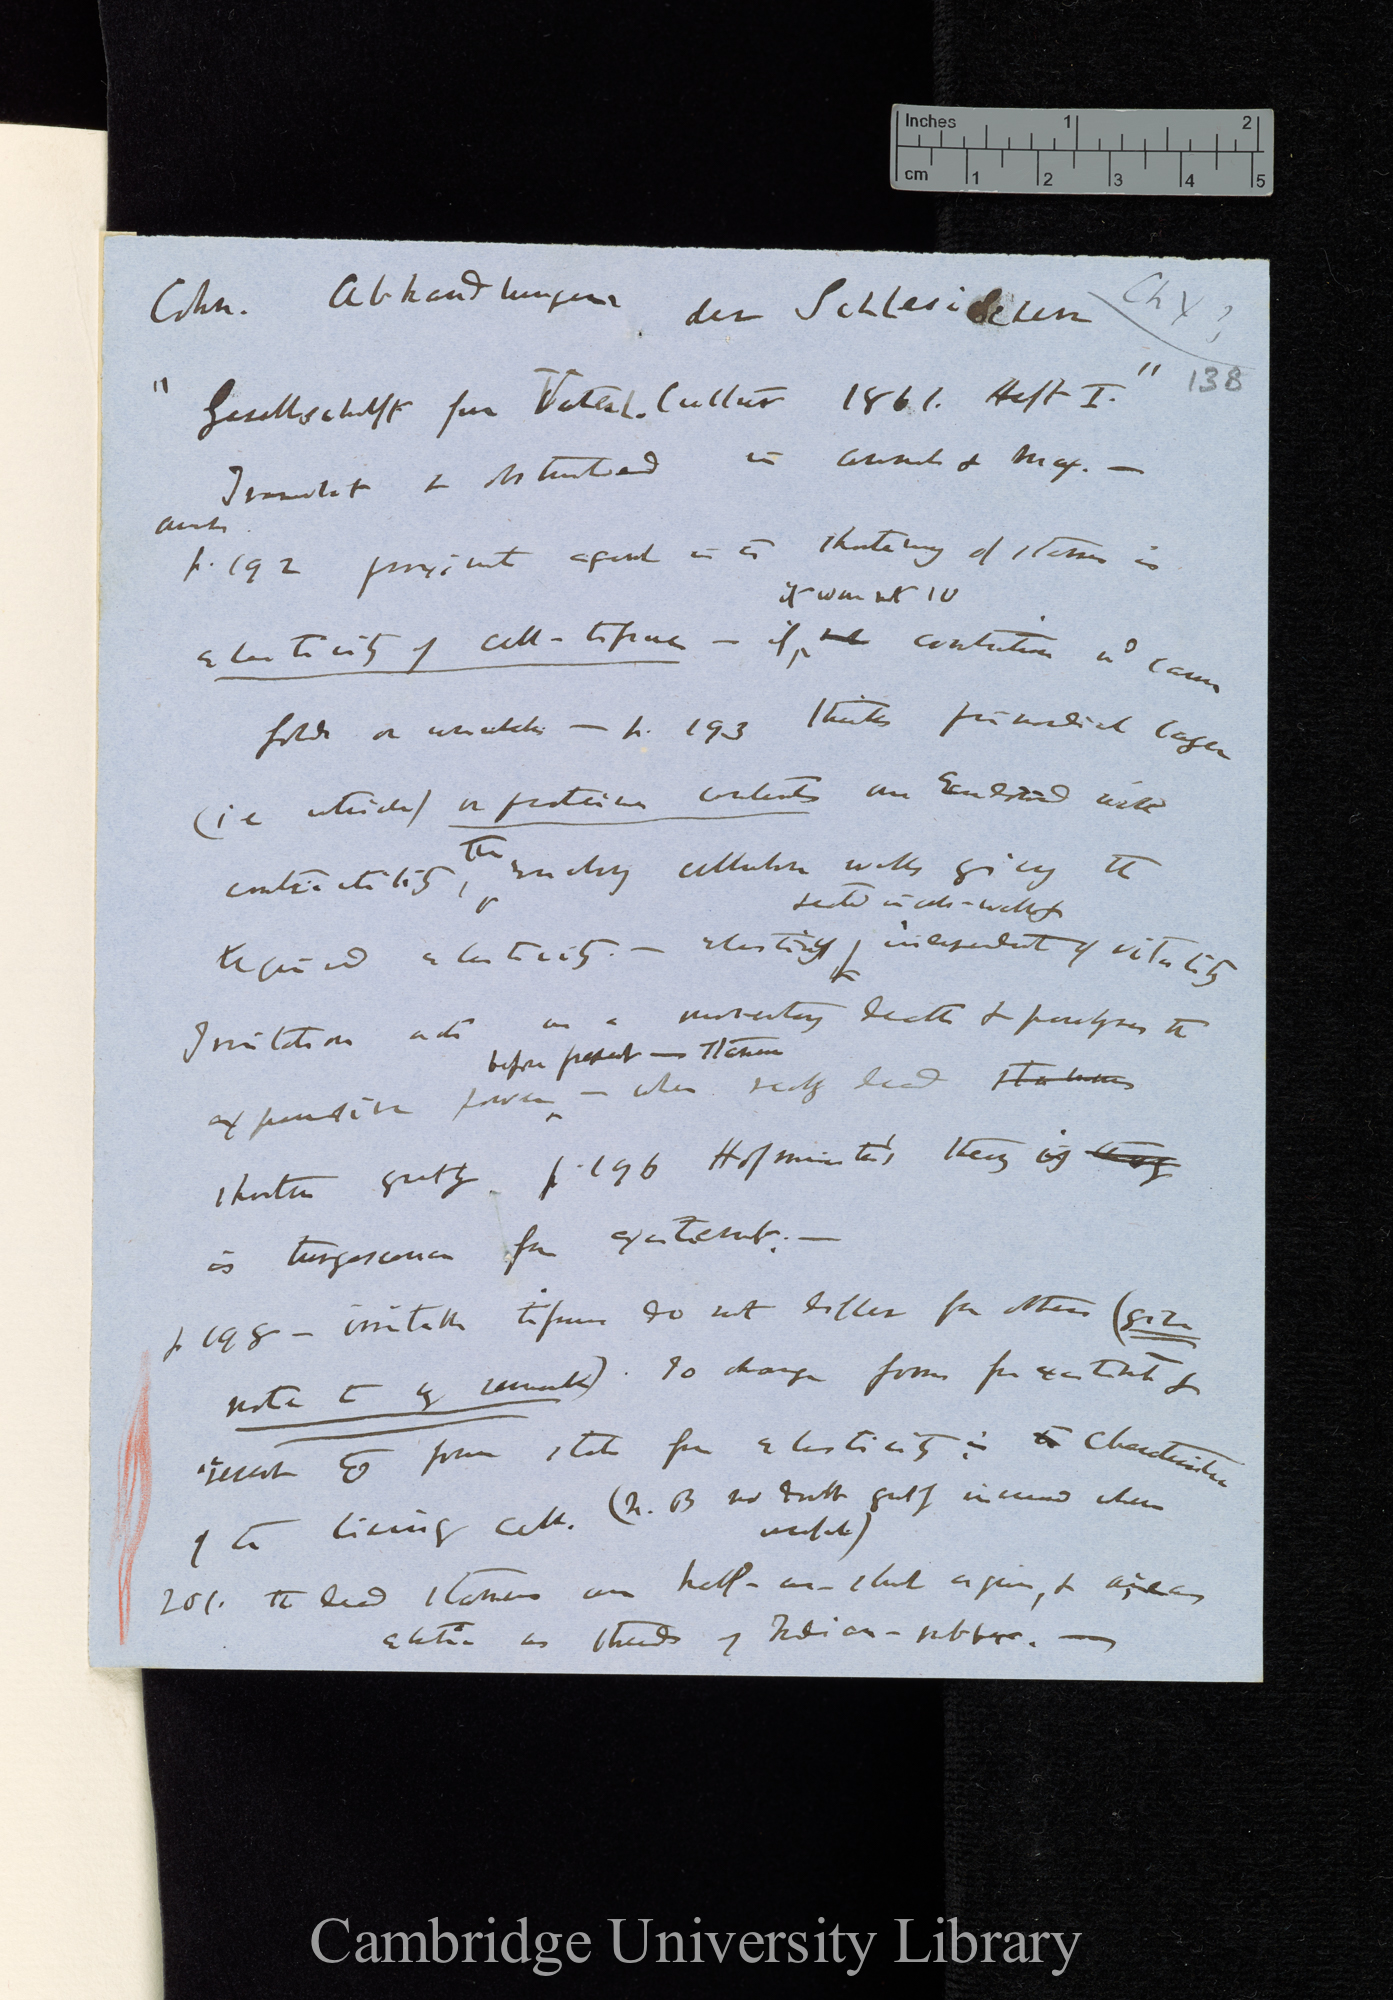 Inches 1 2
cm 1 2 3 4 5
Ch X ?
138
Cohn. Abhandlungen der Schlesischen
" Gesellschaft fur Vaterl. Cultur 1861. Heft I. "
Translat & abstracted in Annals & Mag. —
p. 192 proximate agent in the shortening of stamens is
if were not so
elasticity of cell-tissue — if, contraction wd cause
folds or wrinkles — p. 193 thinks primordial layer
(ie utricle) or protein contents are endowed with
contractility, the enclosing cellulose walls giving the
seated in cell-walls
required elasticity. — elasticity independent of vitality
Irritation acts as a momentary death & paralyses the
before present — stamens
expansive power — when really dead stamens
shorten greatly p. 196 Hofmeister's theory is
is turgescence from excitement. —
p 198 — irritable tissues do not differ from others (give
note to my remarks). To change form from excitement &
resume former state from elasticity is characteristic
of the living cell. (N.B no doubt greatly increased when
useful)
201. the dead stamens are half- as- short again, &
elastic as threads of Indian-rubber. —
Cambridge University Library